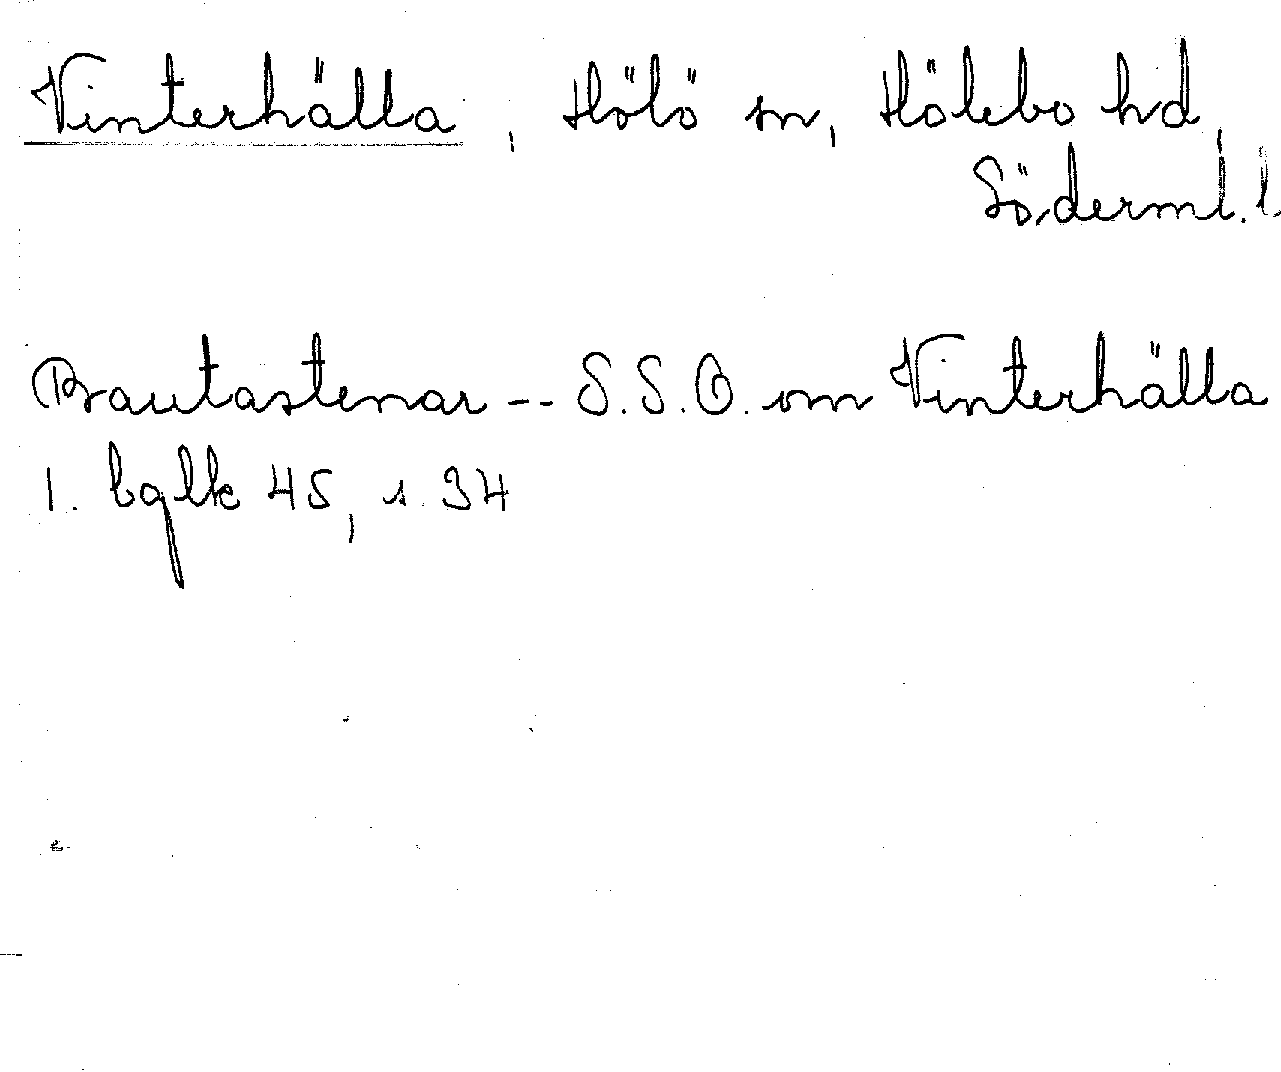 Vinterhälla, Hölö sn, Hölebo hd,
Söderml. l.
Bautastenar -- S.S.O. om Vinterhälla
1. bglk 45, s. 34